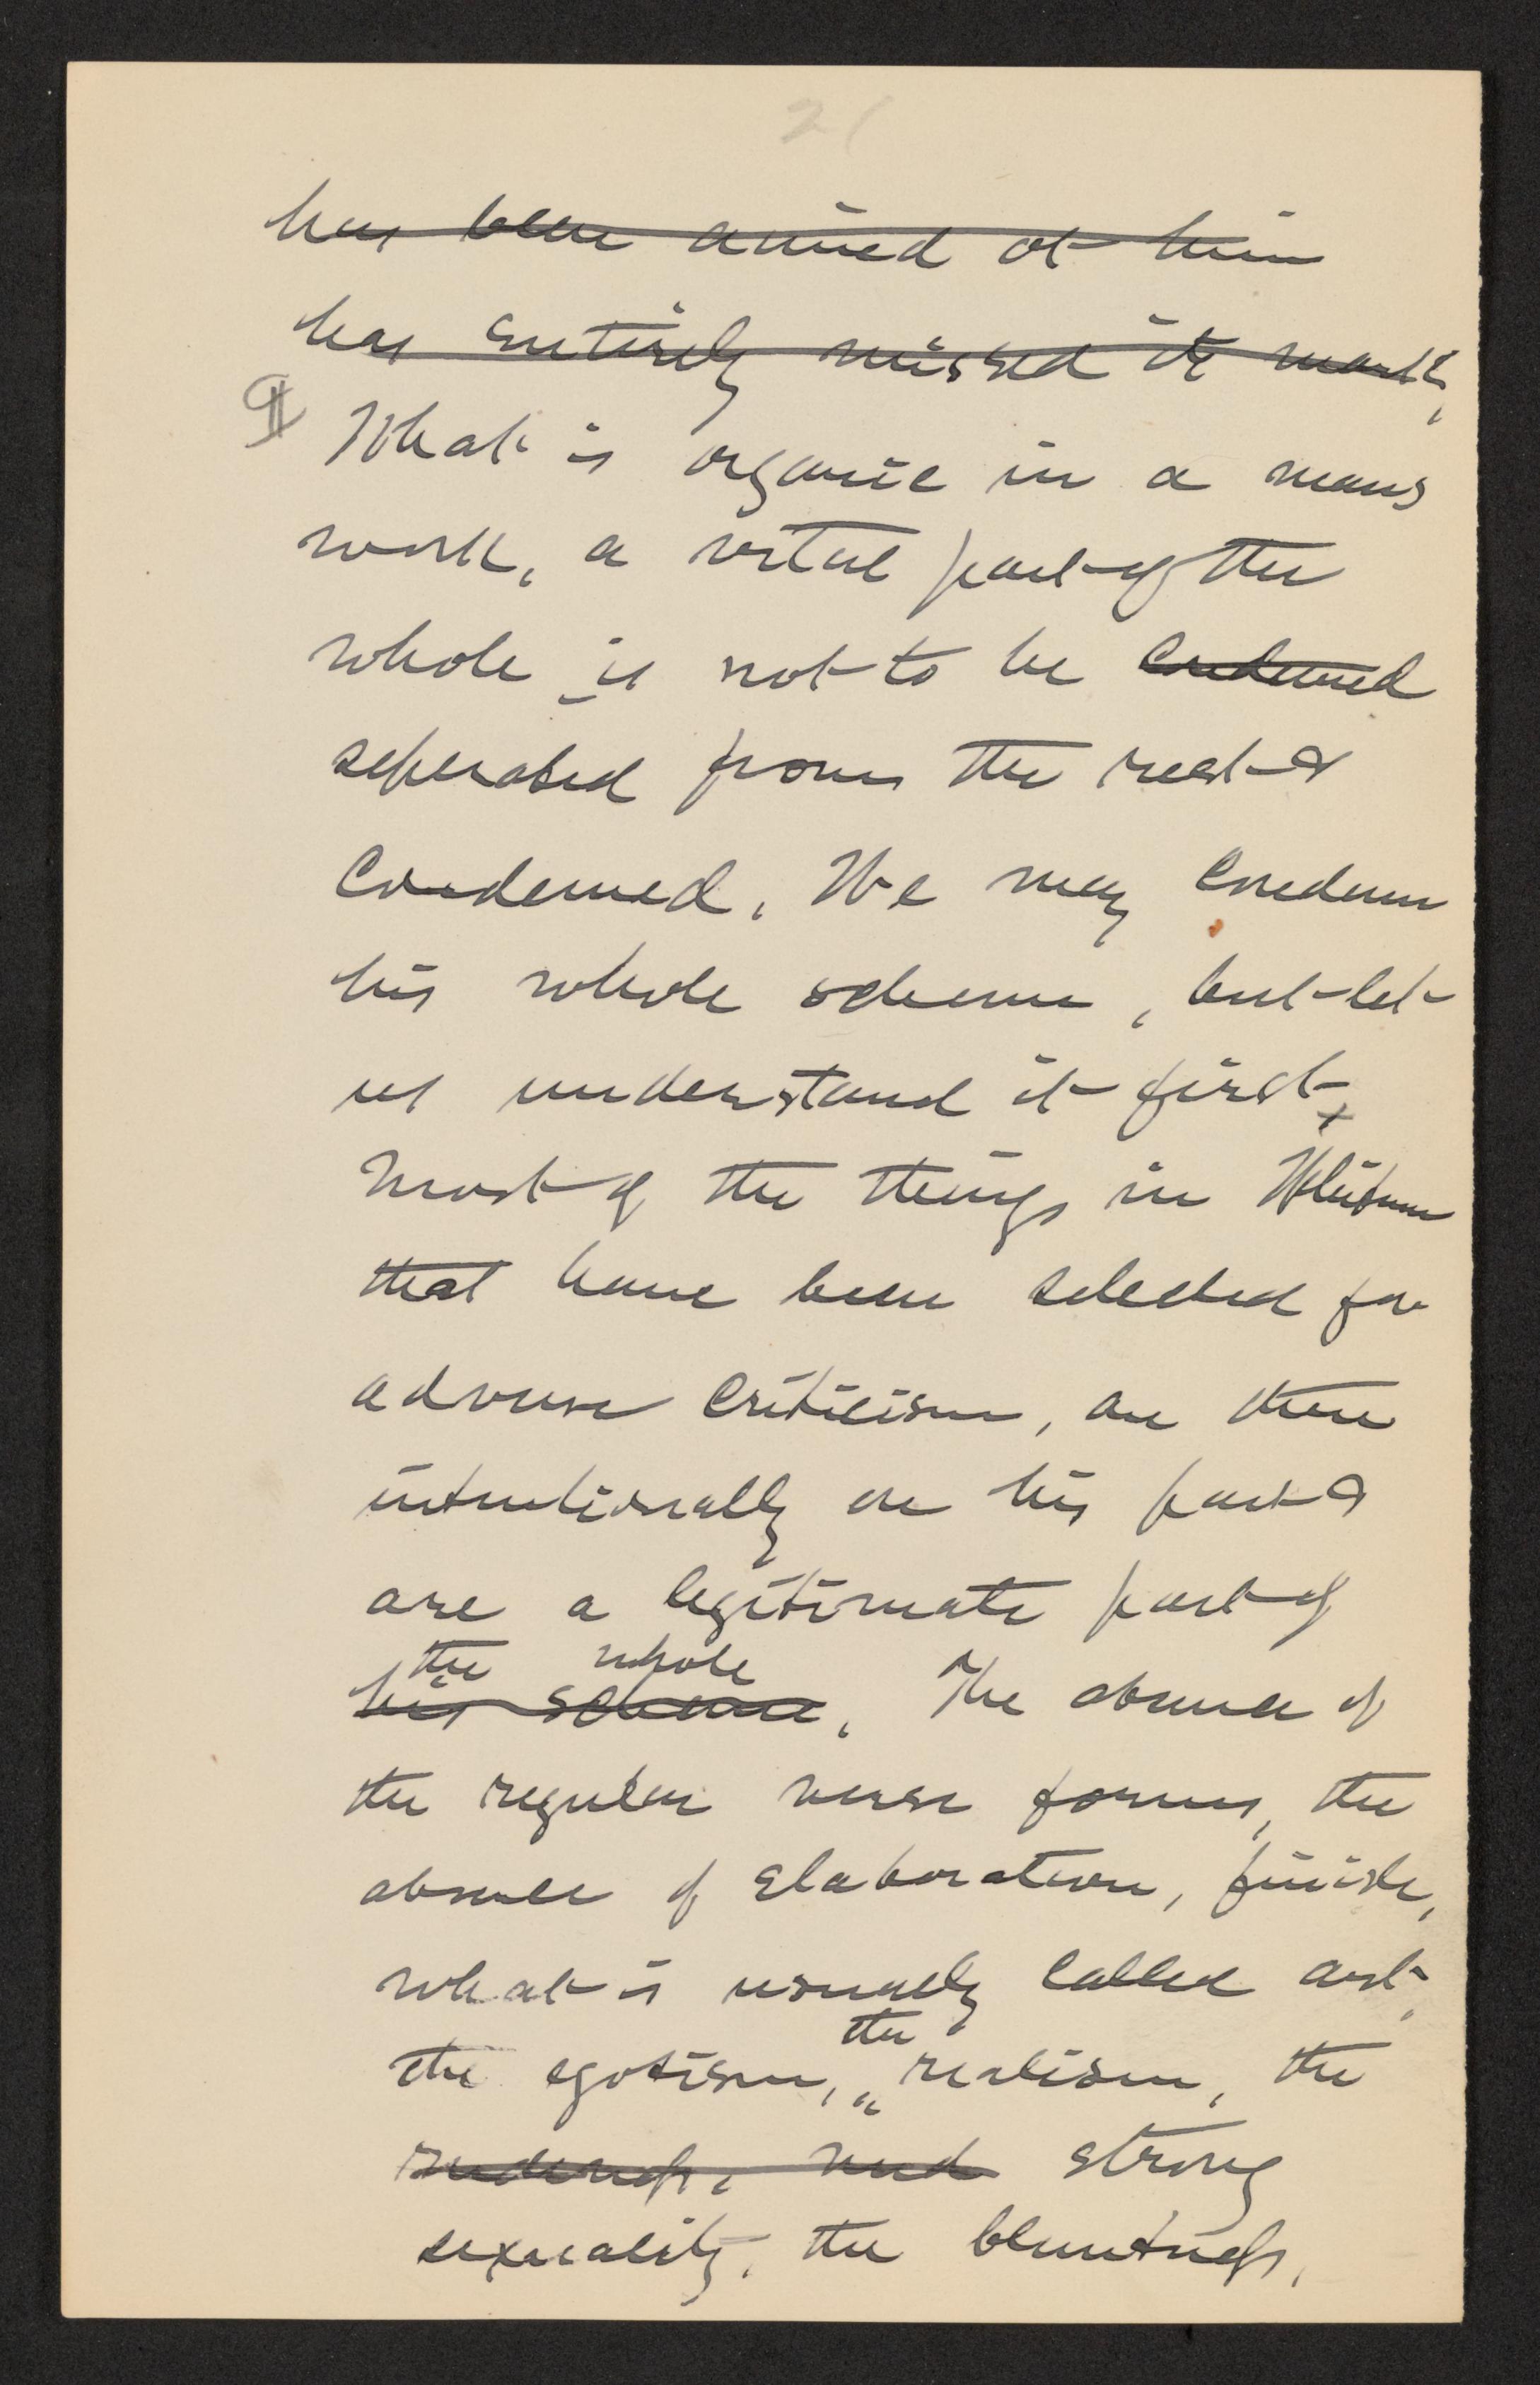 21
has been aimed at him
has entirely missed its mark,
¶ What is organic in a mans
work, a vital part of the
whole is not to be condemned
seperated from the rest &
condemed. We may condemn
his whole scheme, but let
us understand it first.
Most of the things in Whitman
that have been selected for
adverse criticism, are there
intentionally on his part &
are a legitimate part of
the whole
his scheme. The absence of
the regular verse forms, the
absence of elaboration, finish,
what is usually called art,
the
the egotism, realism, the
rudeness, and strong
sexuality, the bluntness,